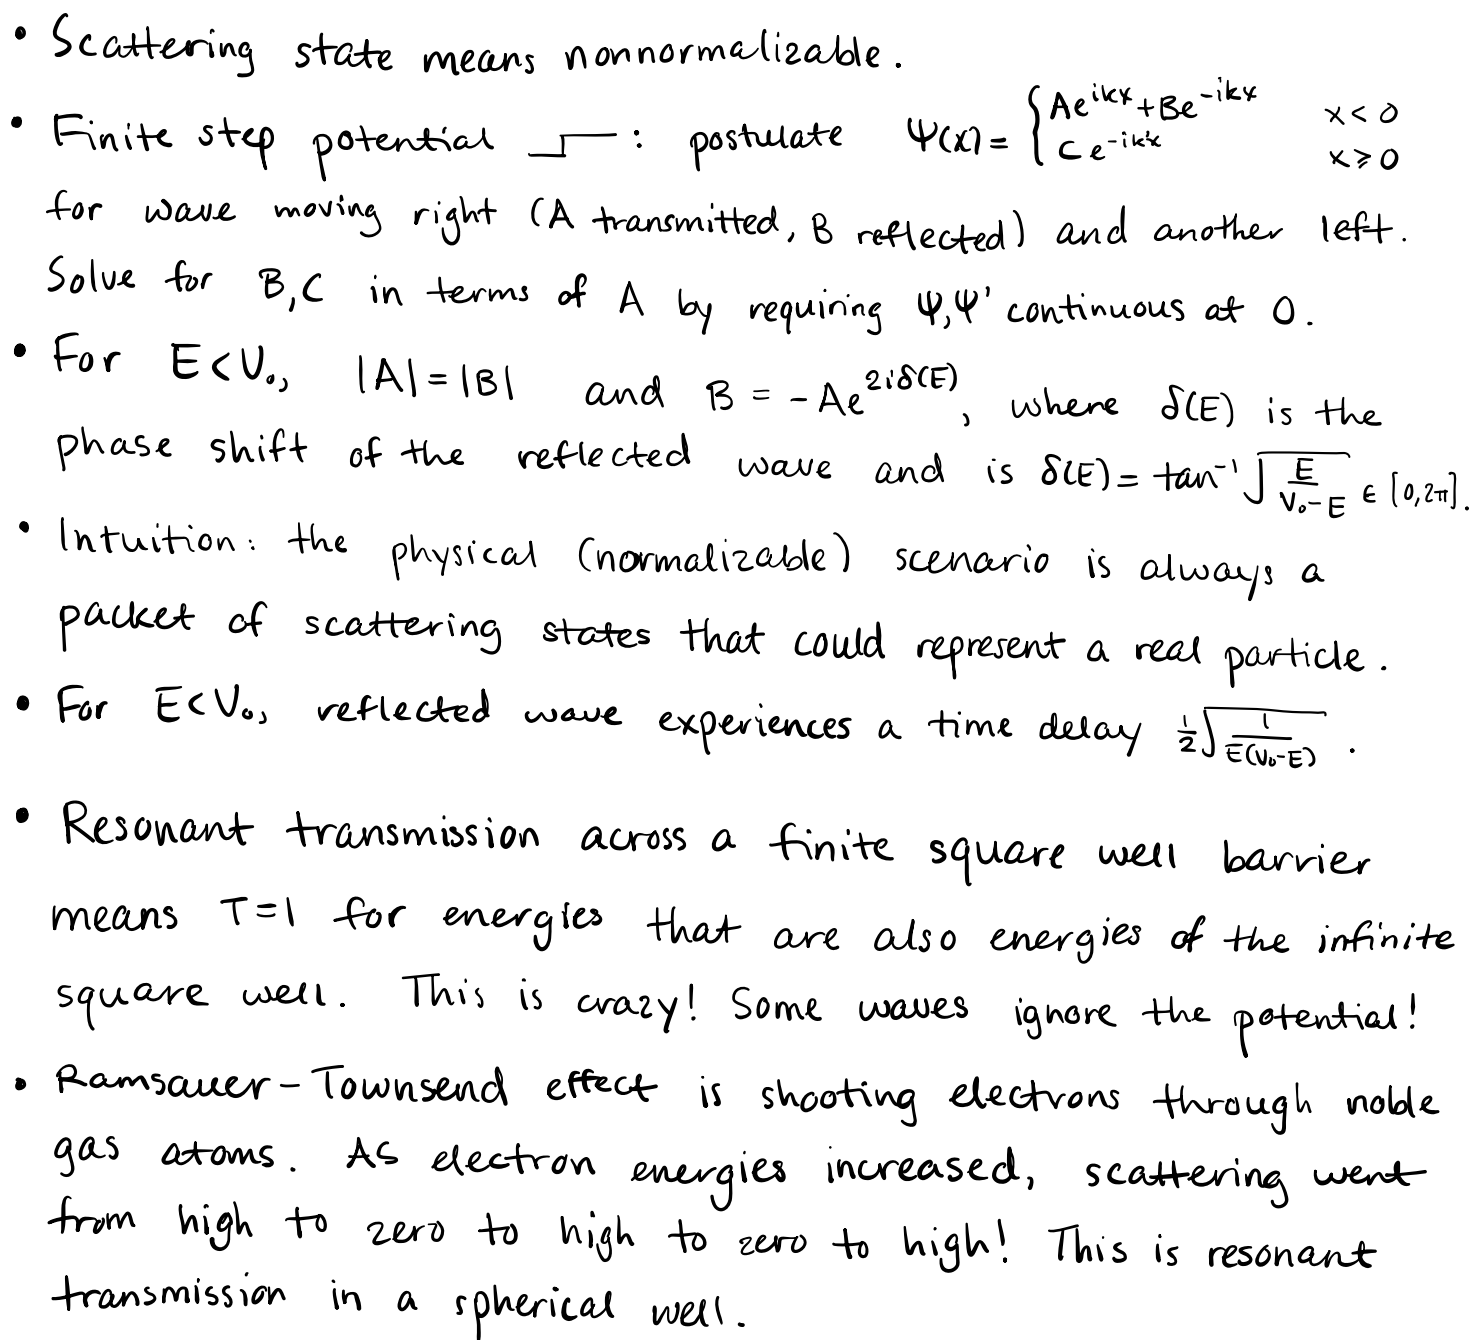 • Scattering state means nonnormalizable.
• Finite step potential : postulate Ψ(x) = { Ae^{ikx} + Be^{-ikx} x < 0
Ce^{-ik'x} x ≥ 0
for wave moving right (A transmitted, B reflected) and another left.
Solve for B, C in terms of A by requiring Ψ, Ψ' continuous at 0.
• For E < V₀, |A| = |B| and B = -Ae^{2iδ(E)}, where δ(E) is the
phase shift of the reflected wave and is δ(E) = tan⁻¹ √(E/(V₀-E)) ∈ [0, 2π].
• Intuition: the physical (normalizable) scenario is always a
packet of scattering states that could represent a real particle.
• For E < V₀, reflected wave experiences a time delay ½ √(1/(E(V₀-E))) .
• Resonant transmission across a finite square well barrier
means T=1 for energies that are also energies of the infinite
square well. This is crazy! Some waves ignore the potential!
• Ramsauer-Townsend effect is shooting electrons through noble
gas atoms. As electron energies increased, scattering went
from high to zero to high to zero to high! This is resonant
transmission in a spherical well.